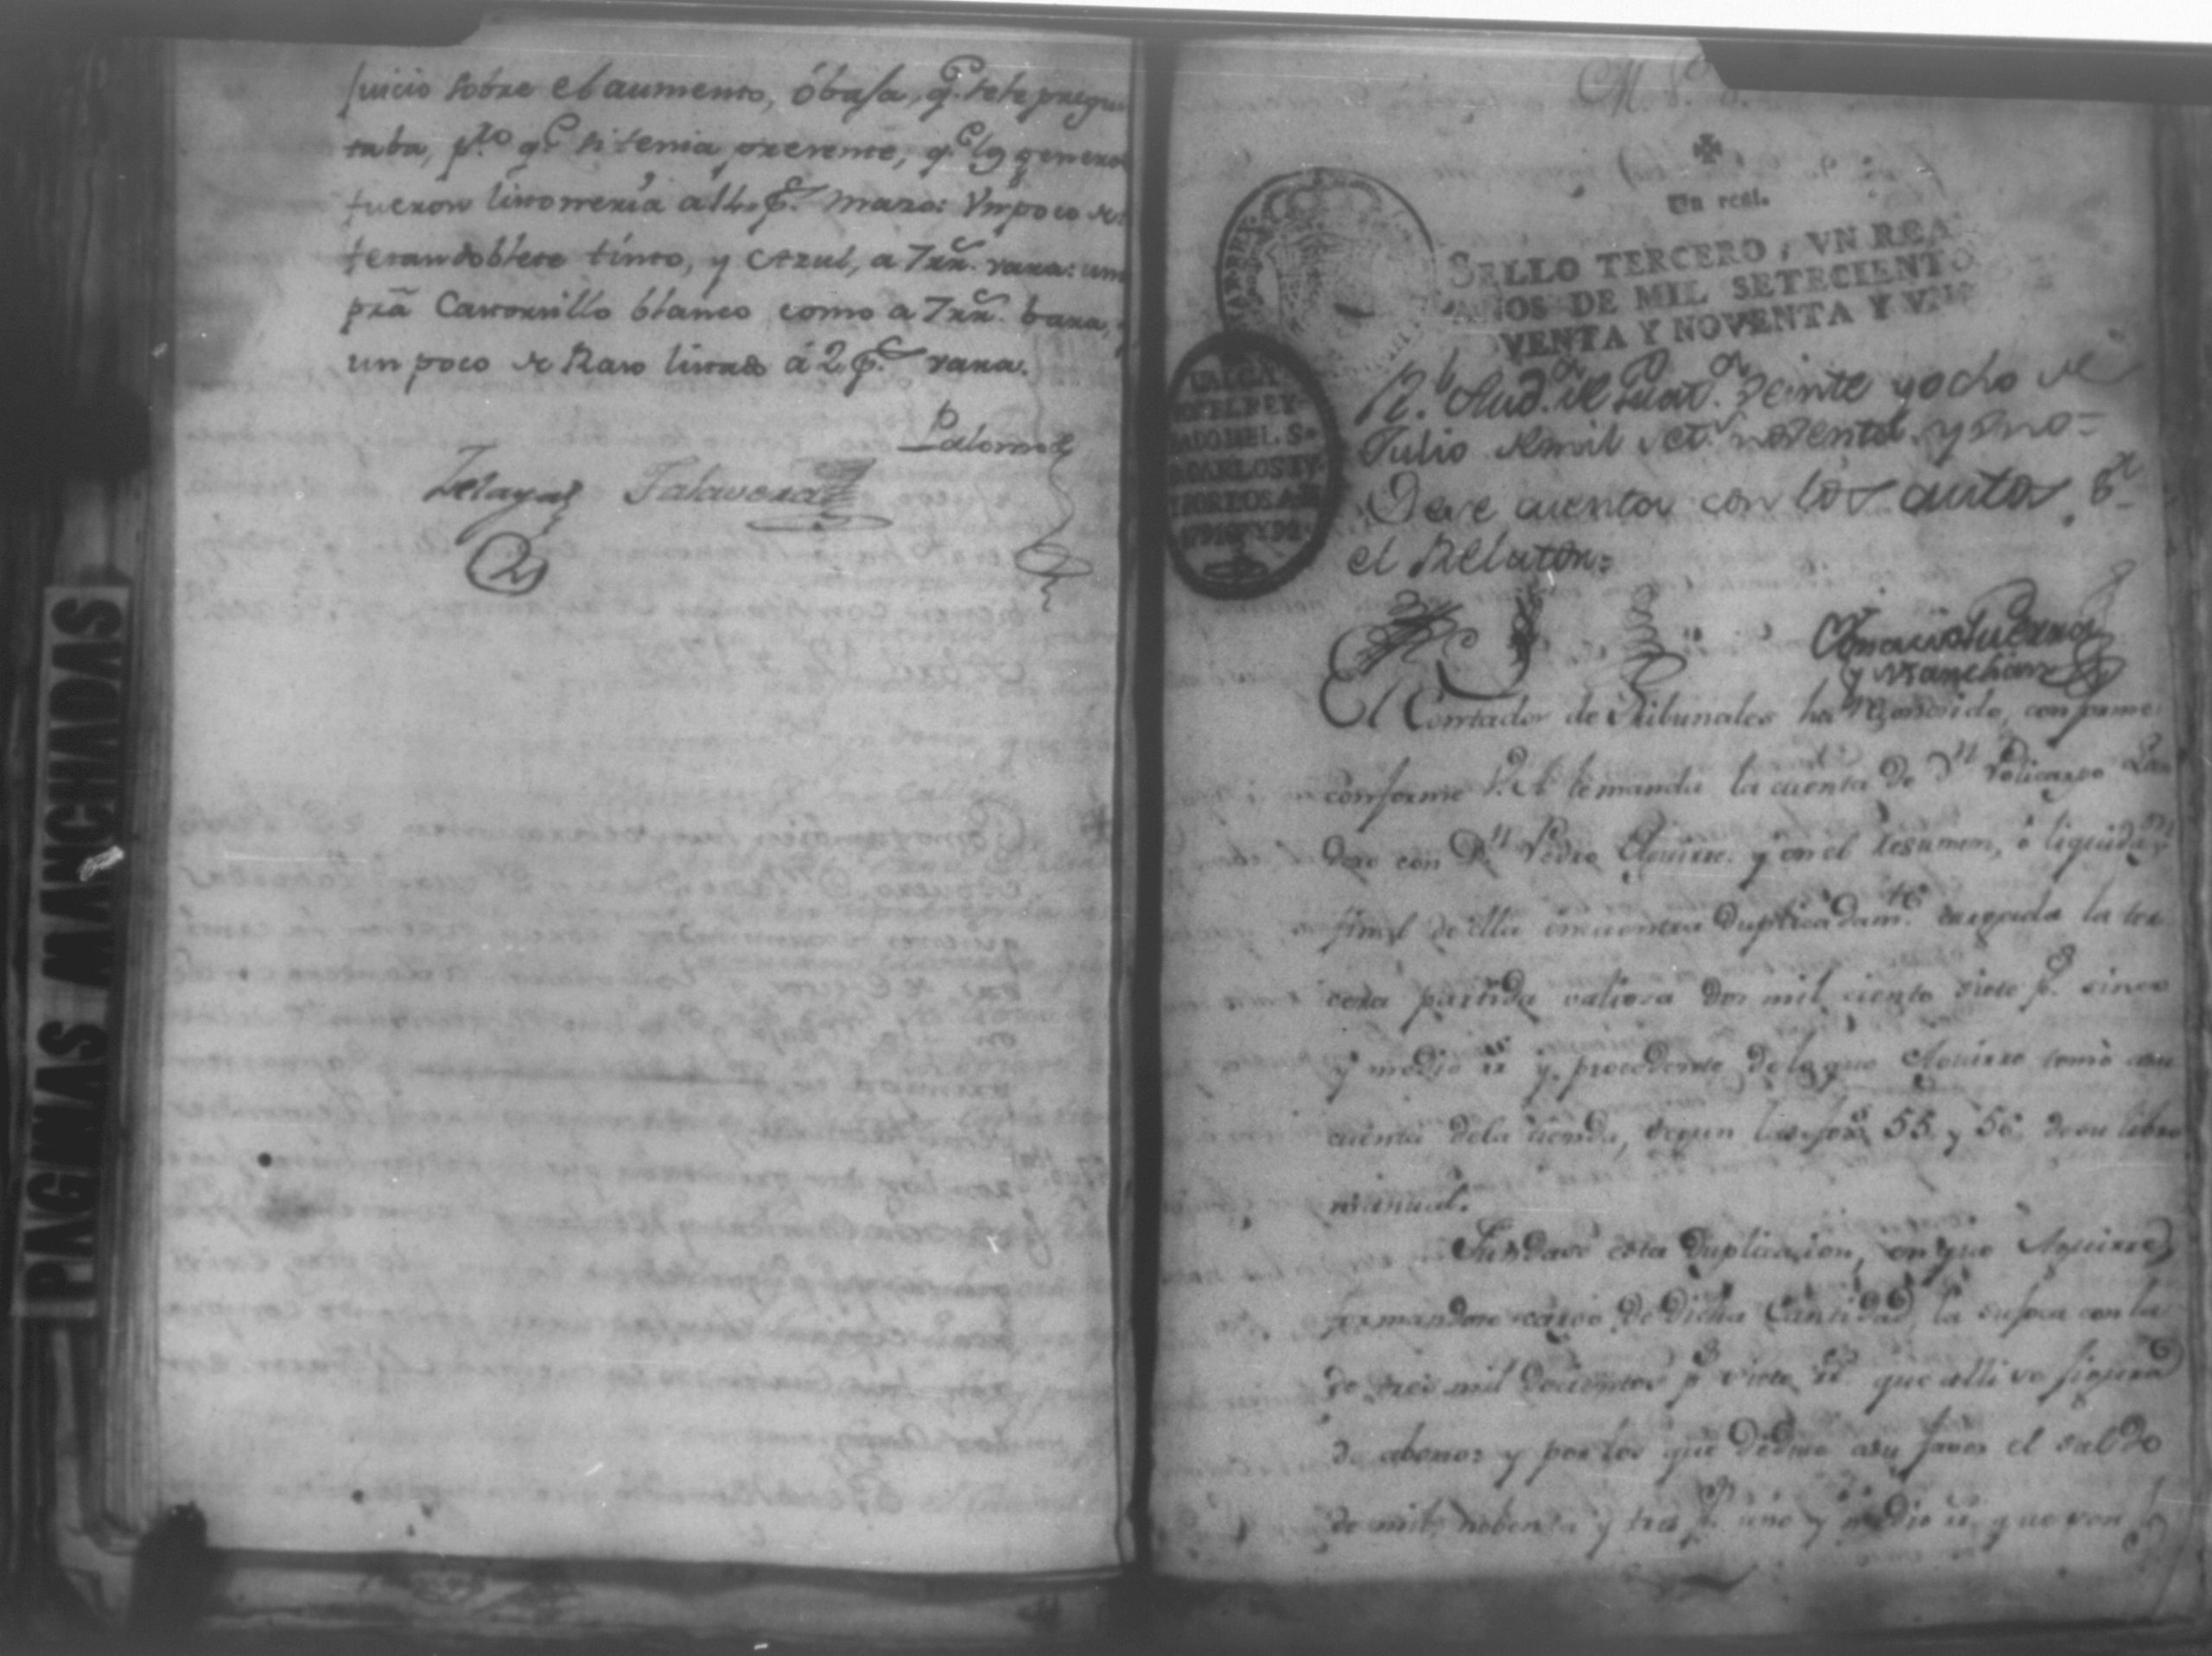 juicio sobre el aumento, ó baja, q.e se le pregun
taba, p.ro q.e si tenia presente, q.e los generos
fueron listoneria a 14 p.s mazo: Un poco de
terciandoblete tinto, y Azul, a 7 rr.s vara: una
pza Cartoncillo blanco como a 7 rr.s bara,
un poco de Raso listado á 2 p.s vara.
Palomo
Zelaya Talavera
PAGINAS MANCHADAS
M. P. S.
Un real.
SELLO TERCERO, VN REA
AÑOS DE MIL SETECIENTO
VENTA Y NOVENTA Y VN
VALGA
EL REY
NADO DEL S.
D. CARLOS IV
R.l Aud.a de Guat.a Veinte y ocho de
Julio de mil set.s noventa y uno=
Dese cuenta con los autos
el Relator=
Ignacio Guerra
y Marchan
El Contador de Tribunales ha reconocido, con
conforme V. A. le manda la cuenta de D.n Policarpo
dero con D.n Pedro Aguirre. y en el resumen, ó liquidaz.n
final de ella encuentra duplicadam.te cargada la ter
cera partida valiosa dos mil ciento siete p.s cinco
y medio rr.s y procedente de lo que Aguirre tomó en
cuenta de la tienda, segun las fox.s 55. y 56. de su libro
manual.
Fundase esta duplicacion, en que Aguirre,
formandose cargo de dicha Cantidad, la sufoca con la
de tres mil docientos p.s siete rr.s que alli se figura
de abonos y por los que deduce a su favor el saldo
de mil, nobenta y tres p.s uno y medio rr.s que son